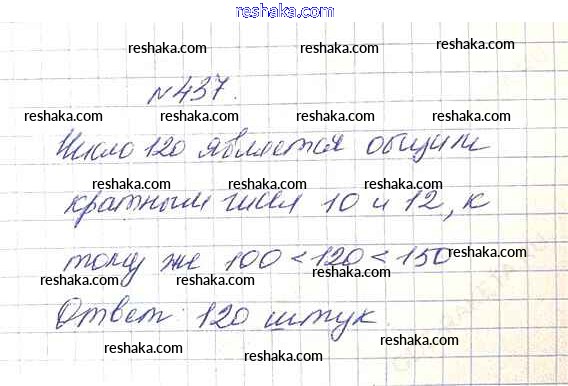 reshaka.com
reshaka.com
reshaka.com
№437.
reshaka.com reshaka.com reshaka.com
Число 120 является общим
reshaka.com reshaka.com
кратным чисел 10 и 12, к
reshaka.com reshaka.com reshaka.com
тому же 100 < 120 < 150
reshaka.com reshaka.com
reshaka.com reshaka.com
Ответ: 120 штук.
reshaka.com
reshaka.com reshaka.com